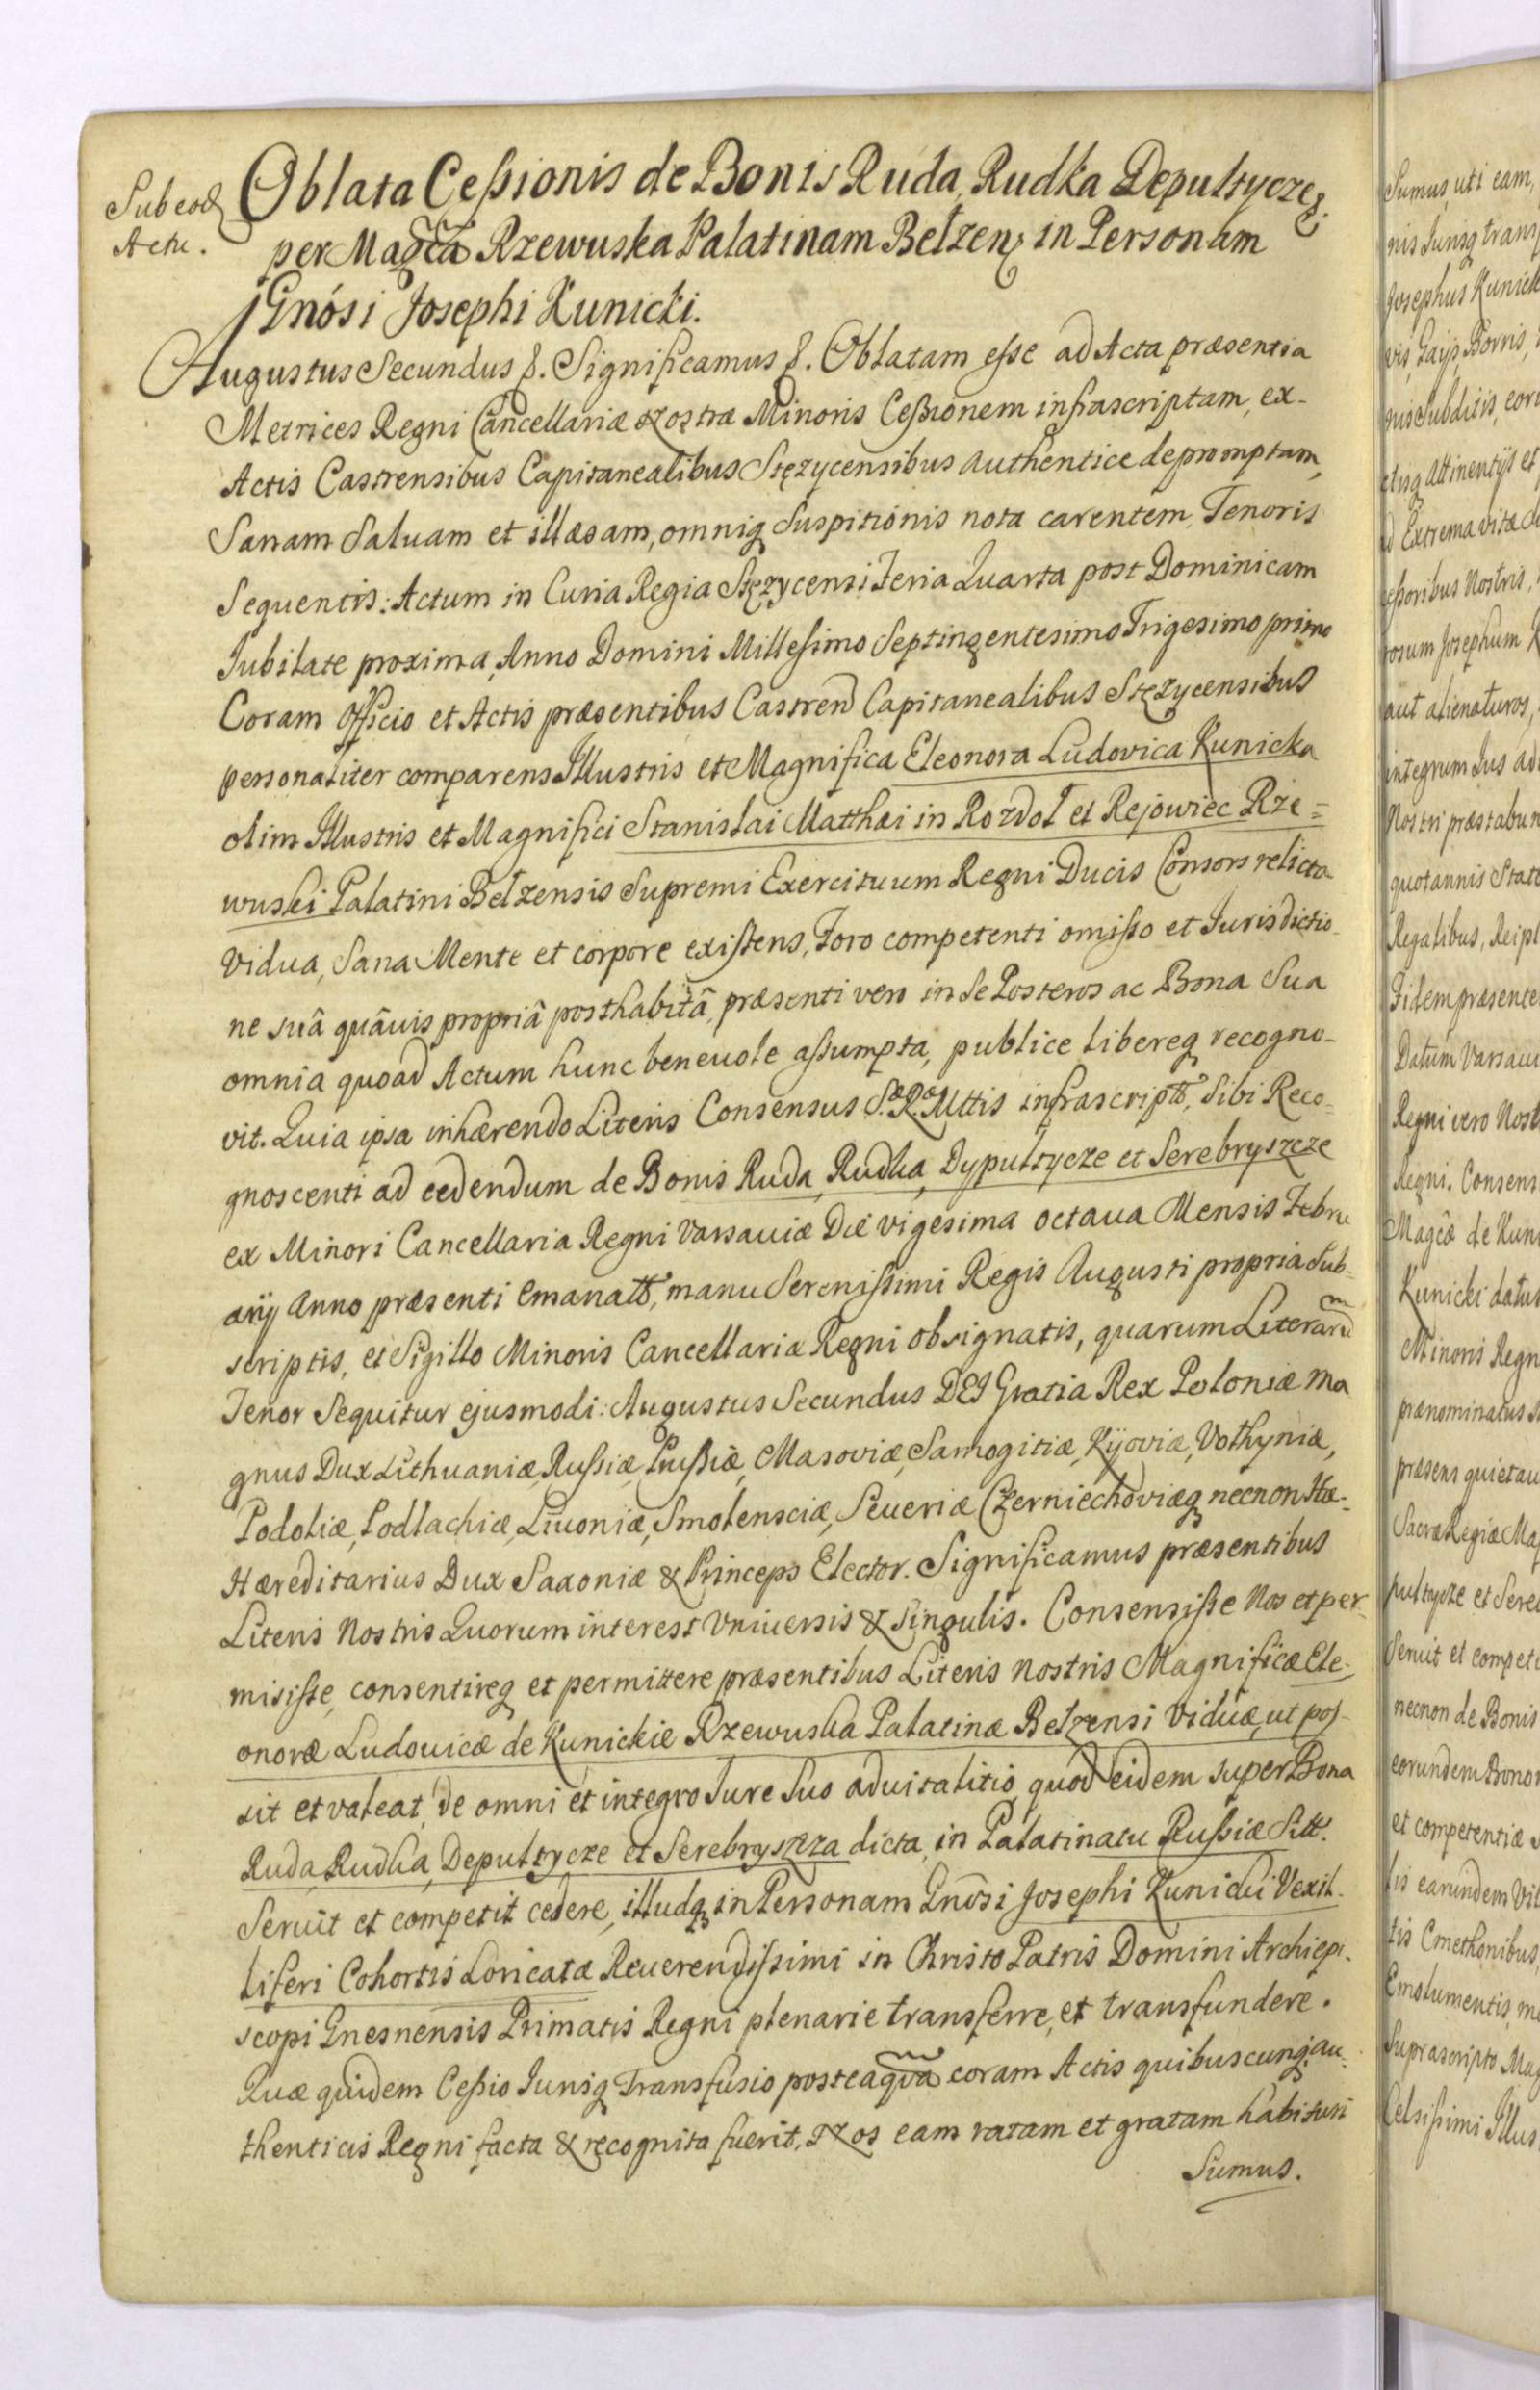 Sub eod
Actu.
Oblata Cessionis de Bonis Ruda, Rudka Depultycze &.
per Magcā Rzewuska Palatinam Belzen, in Personam
Gnósi Josephi Kunicki.
Augustus Secundus &. Significamus &. Oblatam esse ad Acta præsentia
Metrices Regni Cancellariæ Nostræ Minoris Cessionem infrascriptam, ex-
Actis Castrensibus Capitanealibus Stęzycensibus authentice depromptam,
Sanam Saluam et illæsam, omniq Suspitionis nota carentem, Tenoris
Sequentis: Actum in Curia Regia Stęzycensi Feria Quarta post Dominicam
Jubilate proxima, Anno Domini Millesimo Septingentesimo Trigesimo primo
Coram Officio et Actis præsentibus Castren Capitanealibus Stęzycensibus
personaliter comparens Illustris et Magnifica Eleonora Ludovica Kunicka
olim Illustris et Magnifici Stanislai Matthæi in Rozdoł et Rejowiec Rze=
wuski Palatini Bełzensis Supremi Exercituum Regni Ducis Consors relicta
Vidua, Sana Mente et corpore existens, Foro competenti omisso et Jurisdictio-
ne suâ quâuis propriâ posthabitâ, præsenti vero in se Posteros ac Bona Sua
omnia quoad Actum hunc beneuole assumpta, publice libereq recogno-
vit. Quia ipsa inhærendo Literis Consensus S.æ R.æ Mttis infrascriptt, Sibi Reco=
gnoscenti ad cedendum de Bonis Ruda, Rudka, Dypultycze et Serebryszcze
ex Minori Cancellaria Regni Varsauiæ Die vigesima octaua Mensis Febru
arij Anno præsenti emanatt, manu Serenissimi Regis Augusti propria Sub=
scriptis, et Sigillo Minoris Cancellariæ Regni obsignatis, quarum Literarum
Tenor Sequitur ejusmodi: Augustus Secundus DEI Gratia Rex Poloniæ Ma
gnus Dux Lithuaniæ, Russiæ, Prussiæ, Masoviæ, Samogitiæ, Kijoviæ, Volhyniæ,
Podoliæ, Podlachiæ, Liuoniæ, Smolensciæ, Seueriæ Czerniechoviæq necnon Hæ-
Hæreditarius Dux Saxoniæ & Princeps Elector. Significamus præsentibus
Literis Nostris Quorum interest Vniuersis & Singulis. Consensisse Nos et per-
misisse, consentireq et permittere præsentibus Literis nostris Magnificæ Ele-
onoræ Ludouicæ de Kunickie Rzewuska Palatinæ Belzensi Viduæ, ut pos-
sit et valeat, de omni et integro Jure Suo aduitalitio, quod eidem super Bona
Ruda, Rudka, Depultycze et Serebryszcza dicta, in Palatinatu Russiæ Sitt.
Seruit et competit cedere, illudq in Personam Gnosi Josephi Kunicki Vexil-
liferi Cohortis Loricatæ Reuerendissimi in Christo Patris Domini Archiepi-
scopi Gnesnensis Primatis Regni plenarie transferre, et transfundere.
Quæ quidem Cessio Jurisq Transfusio posteaqvam coram Actis quibuscunq, au-
thenticis Regni facta & recognita fuerit, Nos eam ratam et gratam habituri
Sumus.
Sumus, uti eam,
Josephus Kunick
ad Extrema vitæ
rosum Josephum K
aut alienaturos,
integrum Jus ad
Nostri præstabun
quotannis Stat
Regalibus, Reipl
Fidem præsente
Datum Varsaui
Regni vero Nost
Regni. Consens
Magcæ de Kun
Kunicki datus
Minoris Regn
prænominatus
præsens quietau
Sacræ Regiæ Ma
pultycze et Sere
Seruit et compet
necnon de Bonis
eorundem Bonor
et competentiæ
lis earundem Vil
tis Cmethonibus,
Emolumentis, m
Suprascripto Mag
Celsissimi Illus